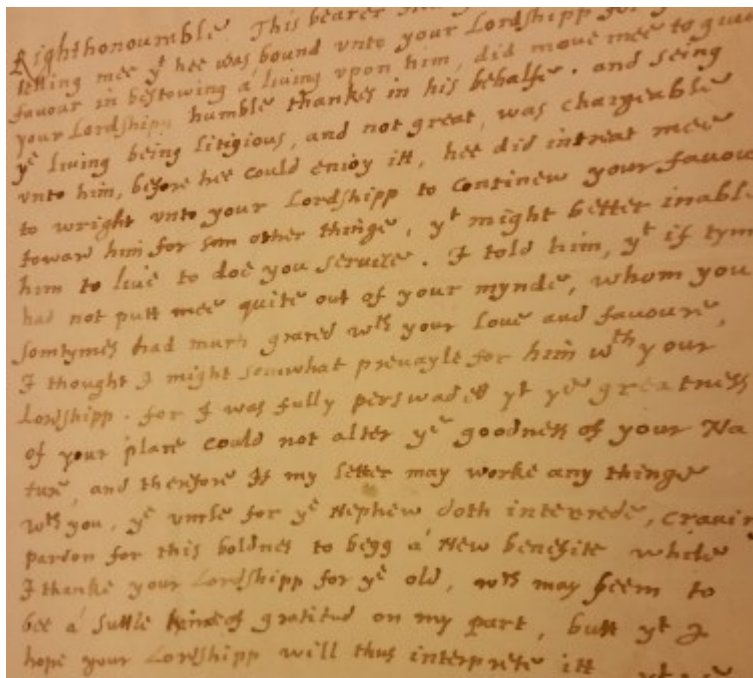 Righthonourable. This bearer
telling mee yt hee was bound vnto your Lordshipp for
favour in bestowing a living vpon him, did move mee to
your Lordshipp humble thankes in his behalfe. and seing
ye living being litigious, and not great, was chargeable
vnto him, before hee could enioy itt, hee did intreat mee
to wright vnto your Lordshipp to continew your favou
toward him for som other thinge, yt might better inabl
him to live to doe you service. I told him, yt if tym
had not putt mee quite out of your mynde, whom you
somtymes had much graced wth your love and favoure,
I thought I might somwhat prevayle for him wth your
Lordshipp. for I was fully perswaded yt ye greatness
of your place could not alter ye goodness of your Na
ture, and therfore If my letter may worke any thinge
wth you, ye vncle for ye Nephew doth intercede, cravin
pardon for this boldnes to begg a New benefite while
I thanke your Lordshipp for ye old, wch may seem to
bee a suttle kinde of gratitud on my part, butt yt I
hope your Lordshipp will thus interprete itt